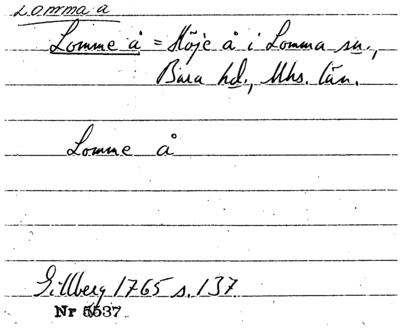 Lomma å
Lomme å = Höje å i Lomma sn.,
Bara hd., Mhs. län.
Lomme å
Gillberg 1765 s. 137
Nr 5537